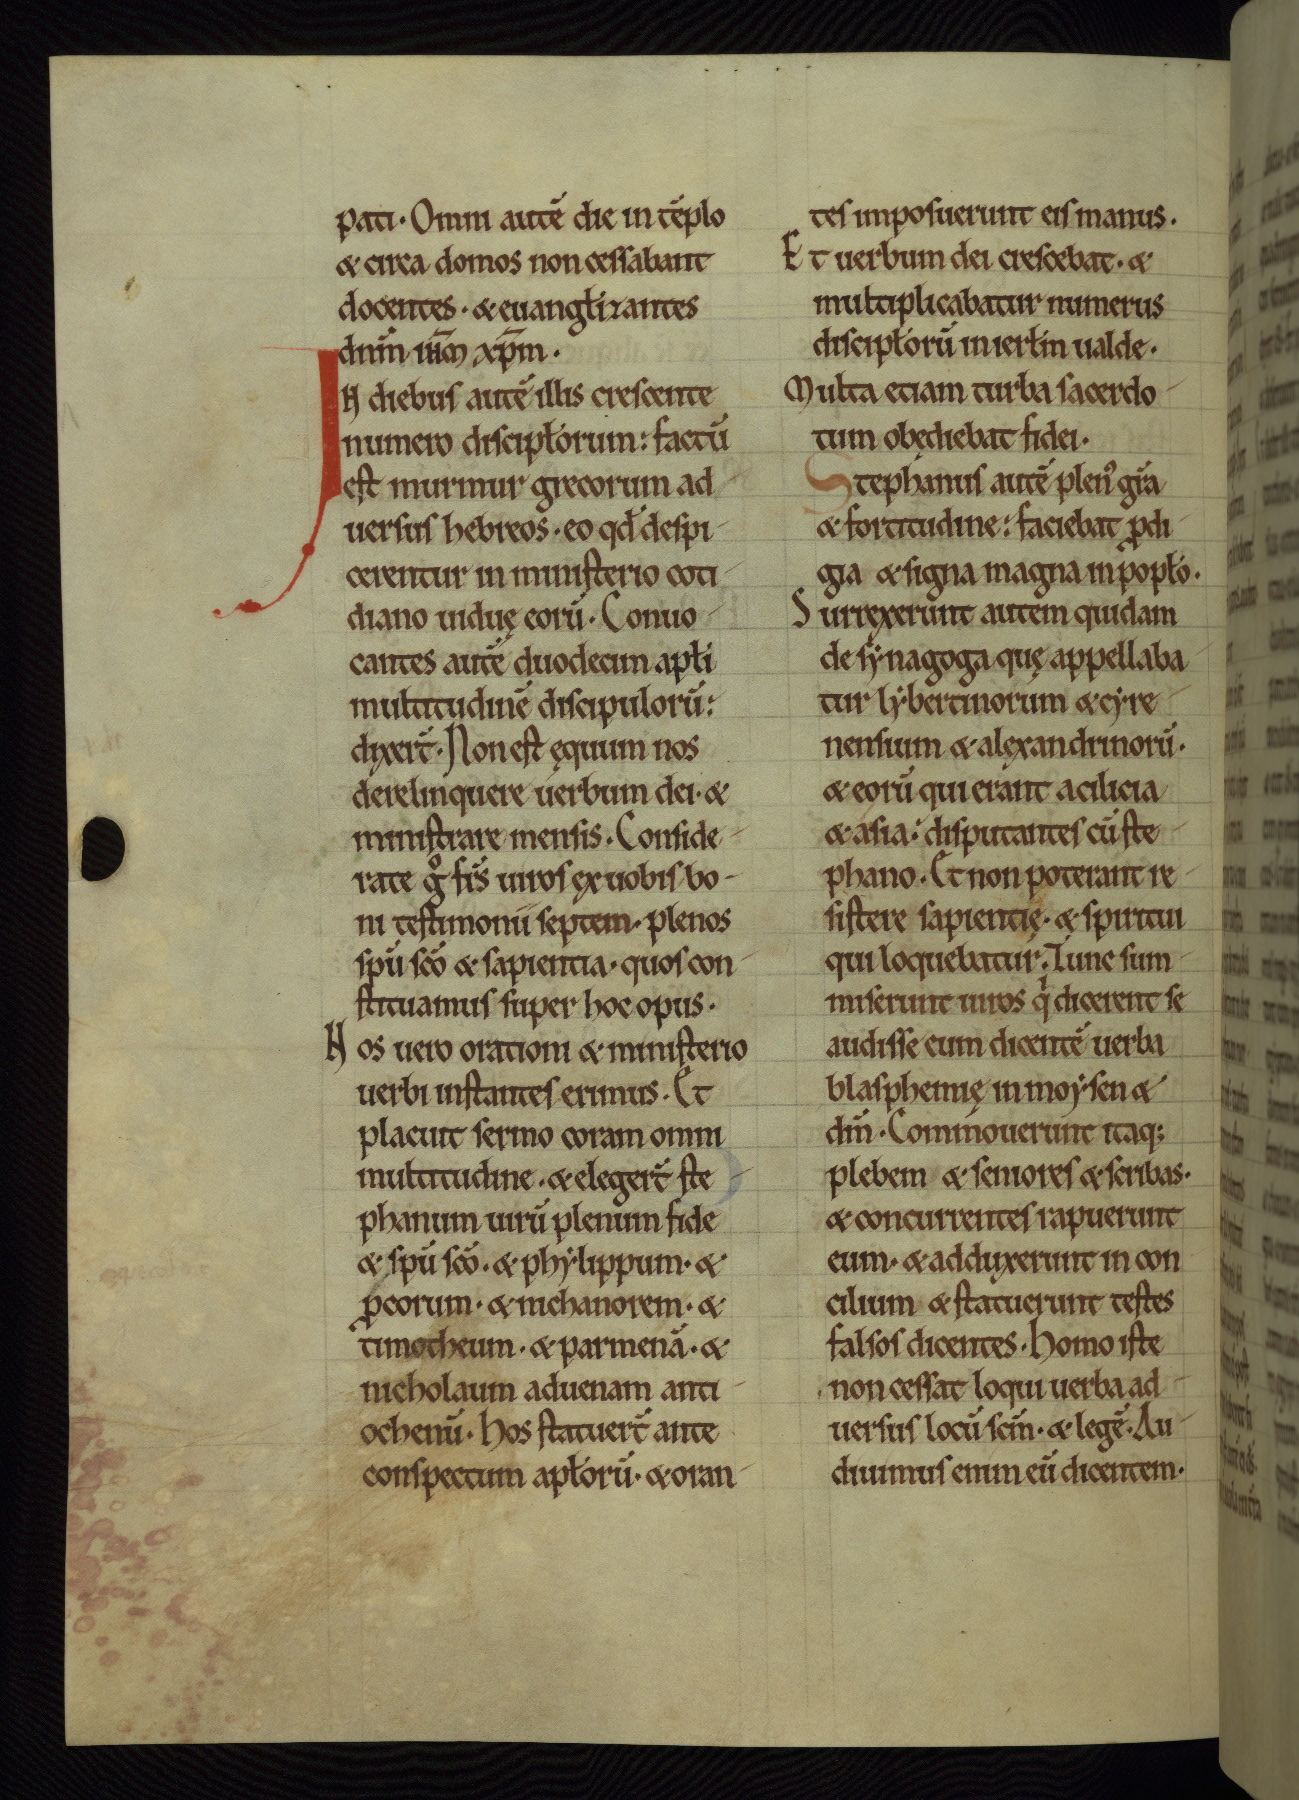 pati · Omni autē die in tēplo
& circa domos non cessabant
docentes · & euanglizantes
dnm ihm xpm ·
In diebus autē illis crescente
numero disciplorum : factū
est murmur grecorum ad
uersus hebreos · eo qd despi
cerentur in ministerio coti
diano uiduę eorū · Conuo
cantes autē duodecim apli
multitudinē discipulorū :
dixert · Non est ęquum nos
derelinquere uerbum dei · &
ministrare mensis · Conside
rate g° frs uiros ex uobis bo-
ni testimonii septem · plenos
spū scō & sapientia · quos con
stituamus super hoc opus ·
Nos uero orationi & ministerio
uerbi instantes erimus · Et
placuit sermo coram omni
multitudine · & elegert ste
phanum uirū plenum fide
& spū scō · & phylippum · &
pcorum · & nichanorem · &
timotheum · & parmenā · &
nicholaum aduenam anti
ochenū · Hos statuert ante
conspectum aplorū · & oran
tes imposuerunt eis manus ·
Et uerbum dei crescebat · &
multiplicabatur numerus
disciplorū in ierlm ualde ·
Multa etiam turba sacerdo
tum obędiebat fidei ·
Stephanus autē plen᾿ gra
& fortitudine : faciebat pdi
gia & signa magna in poplo ·
Surrexerunt autem quidam
de synagoga quę appellaba
tur lybertinorum & cyre
nensium & alexandrinorū ·
& eorū qui erant a cilicia
& asia : disputantes cū ste
phano · Et non poterant re
sistere sapientię · & spiritui
qui loquebatur ; Tunc sum
miserunt uiros qi dicerent se
audisse eum dicentē uerba
blasphemię in moysen &
dm · Commouerunt itaq;
plebem & seniores & scribas ·
& concurrentes rapuerunt
eum · & adduxerunt in con
cilium & statuerunt testes
falsos dicentes · Homo iste
non cessat loqui uerba ad
uersus locū scm · & legē · Au
diuimus enim eū dicentem ·